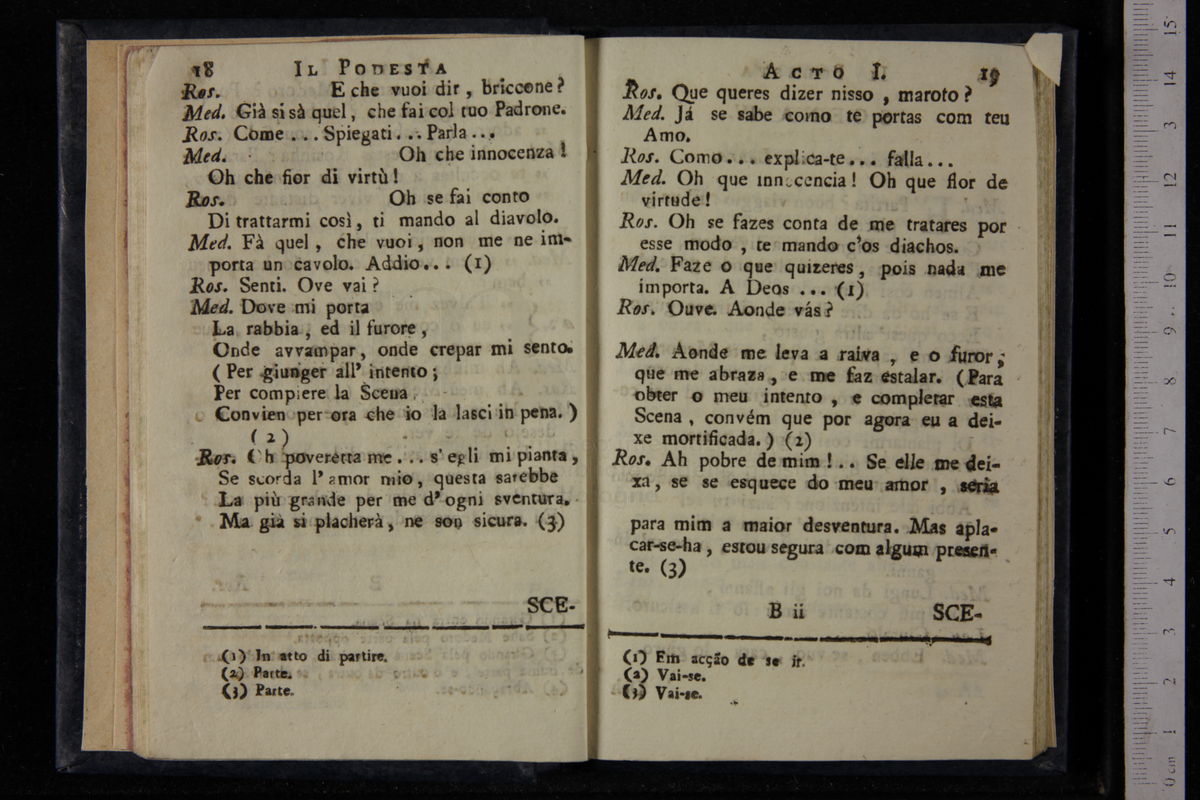 18 IL PODESTA
Ros. E che vuoi dir, briccone?
Med. Già si sà quel, che fai col tuo Padrone.
Ros. Come ... Spiegati ... Parla ...
Med. Oh che innocenza!
Oh che fior di virtù!
Ros. Oh se fai conto
Di trattarmi così, ti mando al diavolo.
Med. Fà quel, che vuoi, non me ne im-
porta un cavolo. Addio... (1)
Ros. Senti. Ove vai?
Med. Dove mi porta
La rabbia, ed il furore,
Onde avvampar, onde crepar mi sento.
(Per giunger all' intento;
Per compiere la Scena
Convien per ora che io la lasci in pena.)
(2)
Ros. Oh poveretta me ... s' egli mi pianta,
Se scorda l' amor mio, questa sarebbe
La più grande per me d' ogni sventura.
Ma già si placherà, ne son sicura. (3)
SCE-
(1) In atto di partire.
(2) Parte.
(3) Parte.
ACTO I. 19
Ros. Que queres dizer nisso, maroto?
Med. Já se sabe como te portas com teu
Amo.
Ros. Como... explica-te... falla...
Med. Oh que innocencia! Oh que flor de
virtude!
Ros. Oh se fazes conta de me tratares por
esse modo, te mando c'os diachos.
Med. Faze o que quizeres, pois nada me
importa. A Deos ... (1)
Ros. Ouve. Aonde vás?
Med. Aonde me leva a raiva, e o furor,
que me abraza, e me faz estalar. (Para
obter o meu intento, e completar esta
Scena, convém que por agora eu a dei-
xe mortificada.) (2)
Ros. Ah pobre de mim!.. Se elle me dei-
xa, se se esquece do meu amor, seria
para mim a maior desventura. Mas apla-
car-se-ha, estou segura com algum presen-
te. (3)
B ii SCE-
(1) Em acção de se ir.
(2) Vai-se.
(3) Vai-se.
0 cm 1 2 3 4 5 6 7 8 9 10 11 12 13 14 15